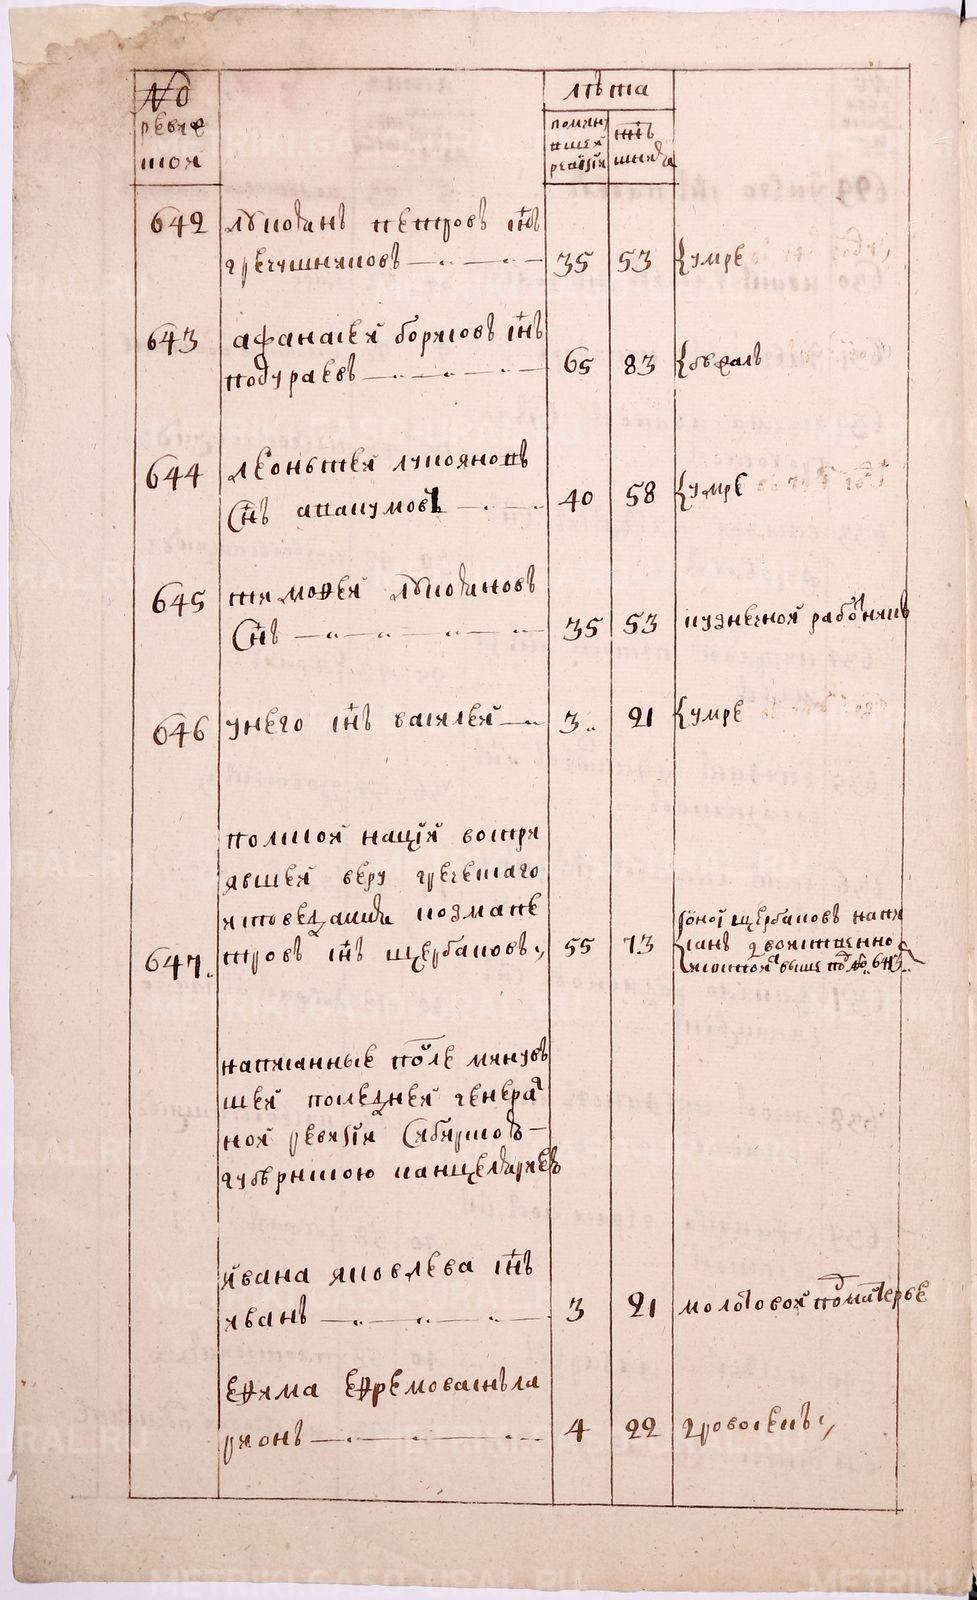 No
ревис
ской
лѣта
помянувшей ревизіи
ннѣ
642 Лукианъ петровъ сн҃ъ
гречишниковъ 35 53 умре
643 афанасей борисовъ сн҃ъ
подураевъ 65 83
644 леонътей лукояновъ
сн҃ъ 40 58 умре
645 тимофей
сн҃ъ 35 53 кузнечной работникъ
646 унего сн҃ъ василей 3 21 умре
полской націи воспри
явшей веру греческаго
исповедания козма пе
647. тровъ сн҃ъ щербаковъ 55 73 оной щербаковъ напи
санъ двоиственно
выше под № 643
написанные после минувъ
шей последней генерал
ной ревизіи Сибирской
губернскою канцеляриею
ивана яковлева сн҃ъ
иванъ 3 21 молотовой подмастерье
ефима ефремова сн҃ъ ла
рионъ 4 22 дровосекъ